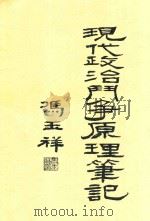 現代政治鬥爭原理筆記
馮玉祥